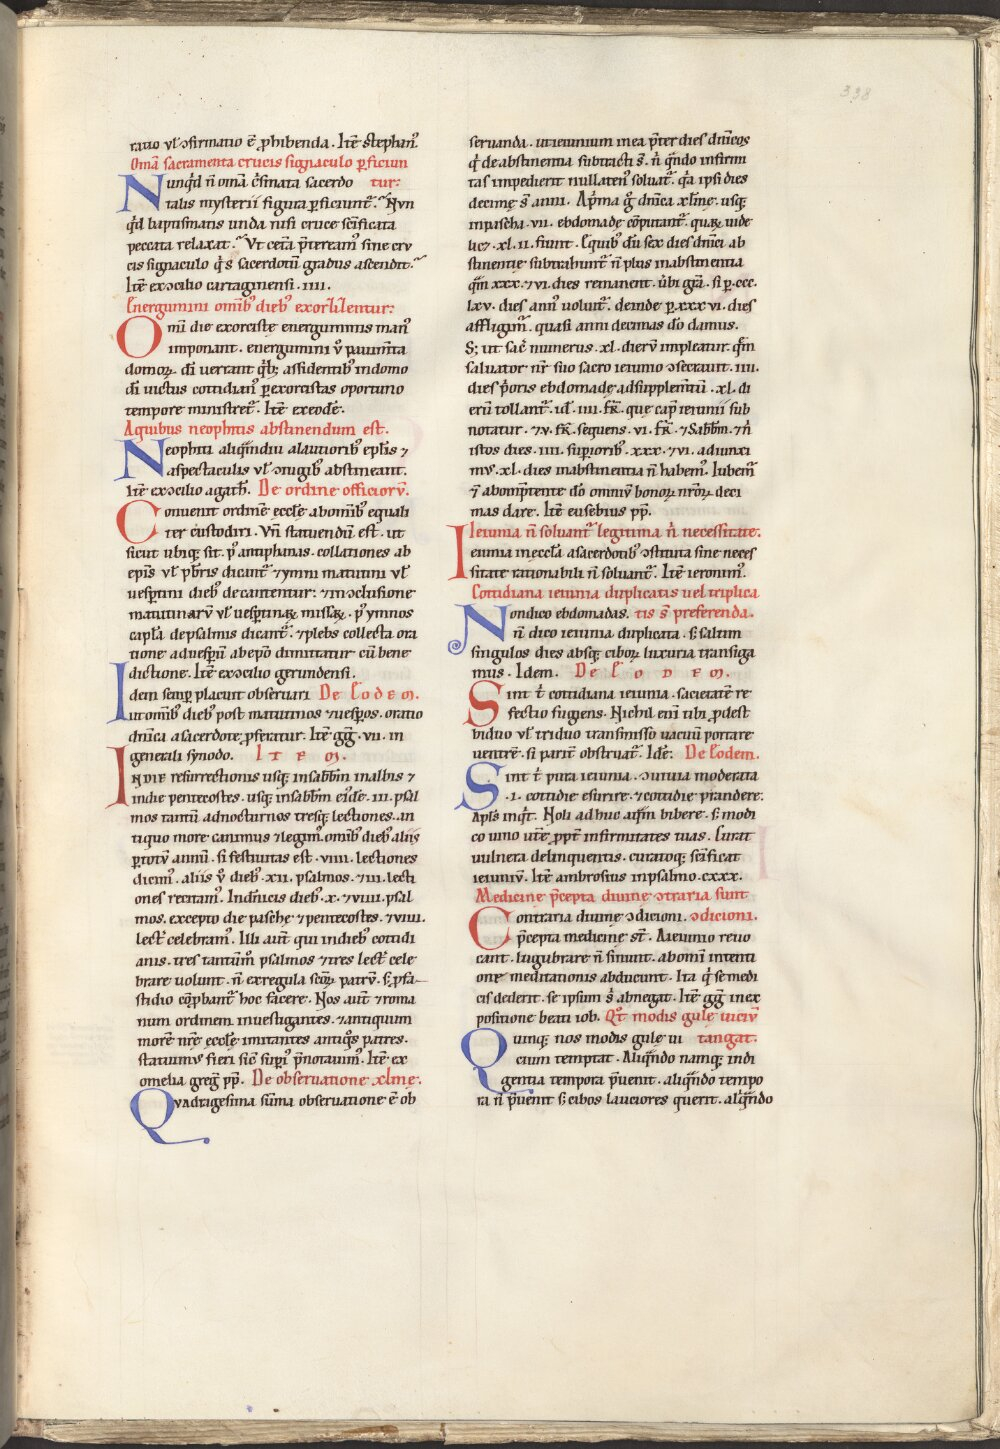 338
ratio vl' ↄfirmatio ē phibenda. Itē stephan'.
Om̄a sacramenta crucis signaculo pficiun
Nunq̇d n̄ om̄a c̄smata sacerdo tur:
talis mysterii figura pficiunt̄. Nun
q̇d baptismatis unda nisi cruce sc̄ificata
peccata relaxat. Vt cet̄a p̄teream' sine cru
cis signaculo q̇s sacerdotū gradus ascendit.
Itē ex ↄcilio cartaginensi. IIII.
Energumini omīb' dieb' exorcizentur:
Omi die exorciste energuminis man'
imponant. energumini ṽ pauim̄ta
domoꝝ. dī uerrant q̇b; assidentib' indomo
dī uictus cottidian' p exorcistas oportuno
tempore ministret̄. Itē exeodē.
Aquibus neophitis abstinendum est.
Neophiti aliq̄ndiu alautiorib' epl̄is ⁊
aspectaculis vl' ↄiugib' abstineant.
Itē ex ↄcilio agath̄. De ordine officiorū.
Conuenit ordinē eccl̄e abomīb' equali
ter custodiri. Vn̄ statuendū est. ut
sicut ubiq; fit. p' antiphanas. collationes ab
ep̄is vl' p̄bris dicant̄ ⁊ymni matutini vl'
uesptini dieb' decantentur: ⁊inↄclusione
matutinarū vl' uesptinaꝝ missaꝝ. p' ymnos
capl̄a depsalmis dicant̄. ⁊plebs collecta ora
tione aduespū abepo dimittatur cū bene
dictione. Itē ex ↄcilio gerundensi.
Idem semp placuit obseruari De Eodem.
ut omīb' dieb' post matutinos ⁊uespos. oratio
dn̄ica a sacerdote pferatur. Itē gḡ. VII. in
generali synodo. ITEM.
INDIE resurrectionis usq; insabb̄m inalbis ⁊
indie pentecostes. usq; insabb̄m ei'dē. III. psal
mos tantū adnocturnos tresq; lectiones. an
tiquo more canimus ⁊legim'. omīb' dieb' aliis
p totū annū. si festiuitas est. VIIII. lectiones
dicim'. aliis ṽ dieb'. XII. psalmos. ⁊III. lecti
ones recitam'. In dn̄icis dieb'. X. ⁊VIIII. psal
mos. excepto die pasche ⁊ pentecostes. ⁊VIIII.
lect̄ celebram'. Illi aut̄ qui indieb' cottidi
anis. tres tantūm psalmos ⁊tres lect̄ cele
brare uolunt. n̄ exregula sc̄oꝝ patrū. s; p fa
stidio cōpbant̄ hoc facere. Nos aut̄ ⁊roma
num ordinem inuestigantes. ⁊antiquum
morē nr̄e eccl̄e imitantes antiq̇s patres.
statuimus fieri sic̄ sup̄i' p̄notauim'. Itē ex
omelia greḡ pp̄. De obseruatione xl̄me.
Quadragesima sūma obseruatione ē ob
seruanda. ut ieiunium in ea p̄ter dies dn̄icos
q̇ de abstinentia subtracti s̄. n̄ q̄ndo infirmi
tas impedierit nullaten' soluat̄. q̇a ipsi dies
decime s̄ anni. Ap̄ma g̊ dn̄ica xl̄me. usq;
inpascha. VII. ebdomade cōputant̄. quaꝝ uide
lic; XL. II. fiunt. Equib' dū sex dies dn̄ici ab
stinentie subtrahunt̄ n̄ plus inabstinentia
q̄m XXX. ⁊VI. dies remanent. ubi gr̄a. si p. ccc.
lxv. dies ann' uoluit̄. deinde p. XXX VI. dies
affligim̄. quasi anni decimas dō damus.
S; ut sac̄ numerus. XL. dierū impleatur. q̄m
saluator nr̄ suo sacro ieiunio ↄsecrauit. IIII.
dies p̄oris ebdomade adsupplem̄tū. XL. di
erū tollant̄. id'. IIII. fr̄. que cap̄ ieiunii sub
notatur. ⁊V. fr̄. sequens. VI. fr̄. ⁊Sabb̄m. ⁊n̄
istos dies. IIII. sup̄iorib'. XXX. ⁊VI. adiunxi
mus. XL. dies inabstinentia n̄ habem'. Iubem̄
⁊ abomp̄tente dō omniū bonoꝝ nr̄oꝝ deci
mas dare. Itē eusebius pp̄.
Ieiunia n̄ soluant̄ legitima n̄ necessitate.
Ieiunia ineccl̄a asacerdotib' ↄstituta sine neces
sitate rationabili n̄ soluant̄. Itē ieronim'.
Cottidiana ieiunia duplicatis uel triplica
Non dico ebdomadas. tis s̄ preferenda.
n̄ dico ieiunia duplicata. s; saltim
singulos dies absq; ciboꝝ luxuria transiga
mus. Idem. De EODEM.
Sint t̄ cottidiana ieiunia. sacietatē re
fectio fugiens. Nichil eni tibi pdest
biduo vl' triduo transmisso uacuū portare
uentrē. si parit̄ obstruat̄. Idē. De Eodem.
Sint t̄ pura ieiunia. ↄuiuia moderata
.I. cottidie esurire. ⁊cottidie prandere.
Apl̄s inq̇t. Noli adhuc aq̄m bibere. s; modi
co uino utere ppt̄ infirmitates tuas. Curat
uulnera delinquentis. curatoq; sc̄ificat
ieiuniū. Itē ambrosius inpsalmo. cxxx.
Medicine p̄cepta diuine ↄtraria sunt
Contraria diuine ↄdicioni. ↄdicioni.
p̄cepta medicine st̄. Aieiunio reuo
cant. lugubrare n̄ sinunt. abom̄i intenti
one meditationis abducunt. Ita q̇ se medi
cis dederit. se ipsum s̄ abnegat. Itē gḡ inex
positione beati iob. Qt̄ modis gule uiciū
Quinq; nos modis gule ui tangat.
cium temptat. Aliq̄ndo namq; indi
gentia tempora p̄uenit. aliq̄ndo tempo
ra n̄ p̄uenit s; cibos lauciores querit. aliq̄ndo